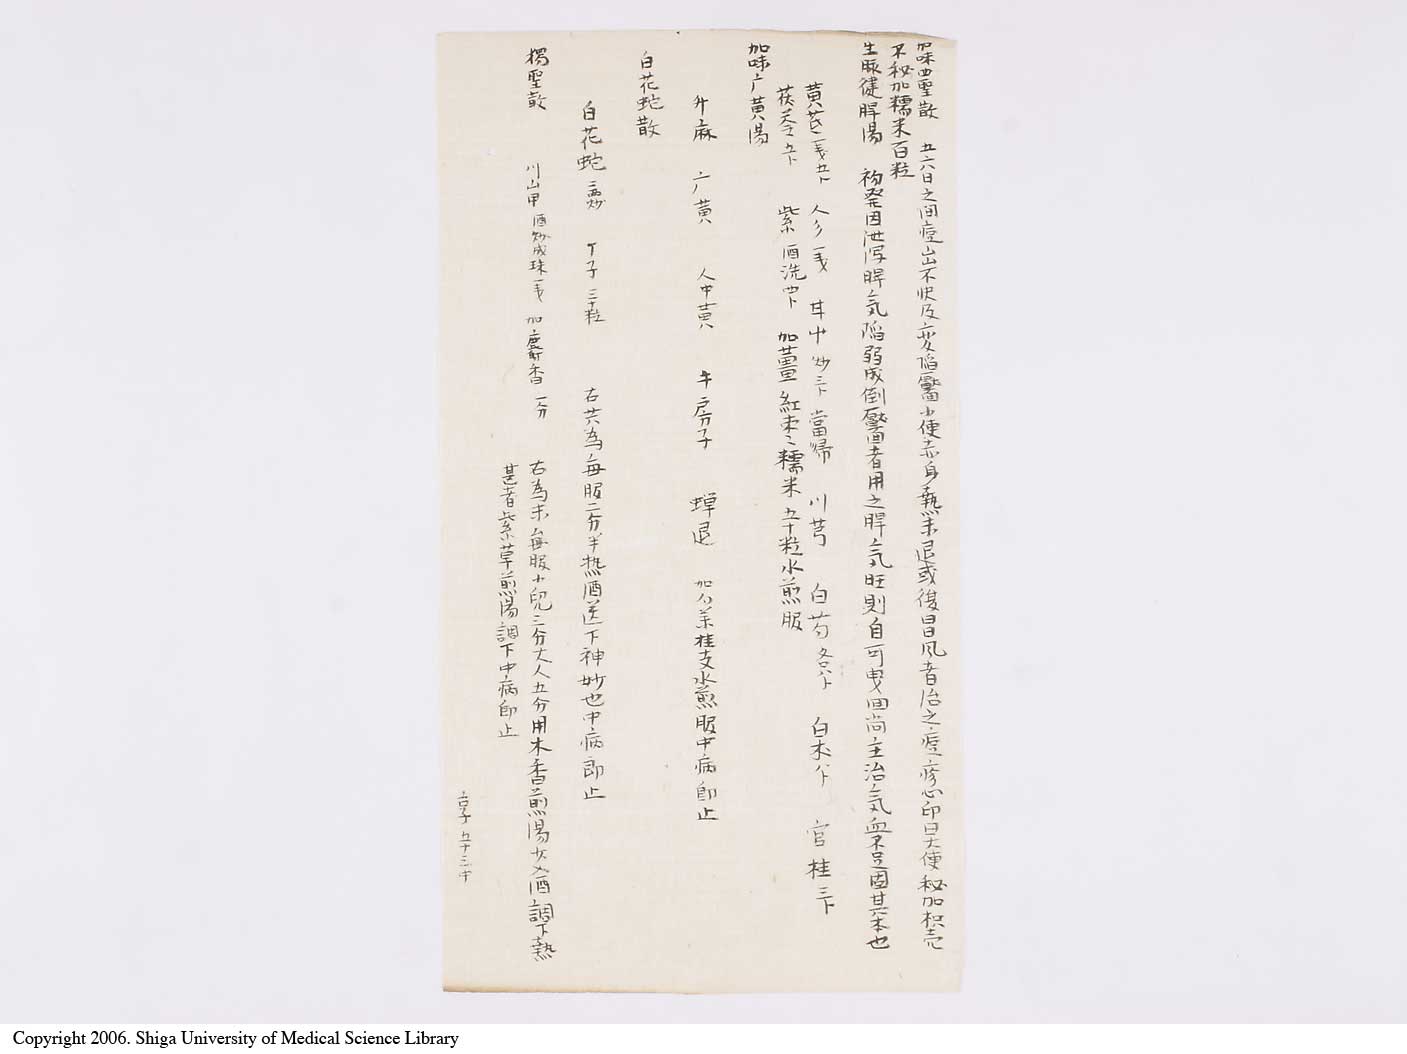 加味四聖散 五六日之間痘出不快及変陥黶小便赤身熱未退或復冒風者治之痘疹心印曰大便秘加枳壳
不秘加糯米百粒
生脈健脾湯 初発因泄泻脾気陥弱成倒黶者用之脾気旺則自可曳回尚主治気血不足固其本也
黄芪 人 甘 炒三 當帰 川芎 白芍 各 白朮 官桂三
茯苓五 紫 酒洗 加薑紅枣糯米五十粒水煎服
加味广黄湯
升麻 广黄 人中黄 牛房子 蝉退 加 桂支水煎服中病即止
白花蛇散
白花蛇 炒 丁子三十粒 右共為每服二分半熱酒送下神妙也中病即止
獨聖散 川山甲酒炒成珠一戋 加麝香一分 右為末每服小児三分大人五分用木香煎湯少入酒調下熱
甚者紫草煎湯調下中病即止
五十三才
Copyright 2006. Shiga University of Medical Science Library